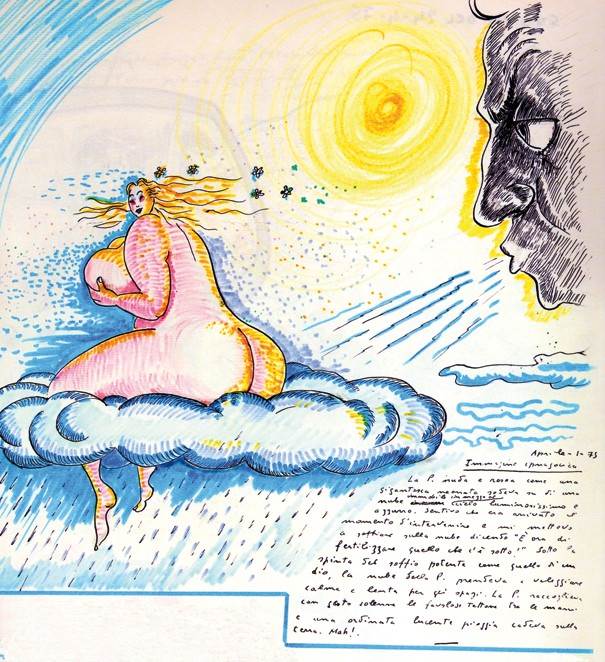 Apr.le-1-75
Immagine ipnagogica
La P. nuda e rossa come una
gigantesca neonata sedeva su di una
nube immobile in mezzo al cielo luminosissimo e
azzurro. Sentivo che era arrivato il
momento d'intervenire e mi mettevo
a soffiare sulla nube dicendo "È ora di
fertilizzare quello che c'è sotto!" Sotto la
spinta del soffio potente come quello di un
dio, la nube della P. prendeva a veleggiare
calma e lenta per gli spazi. La P. raccoglieva
con gesto solenne le favolose tettone tra le mani
e una ordinata lucente pioggia cadeva sulla
terra. Mah!.